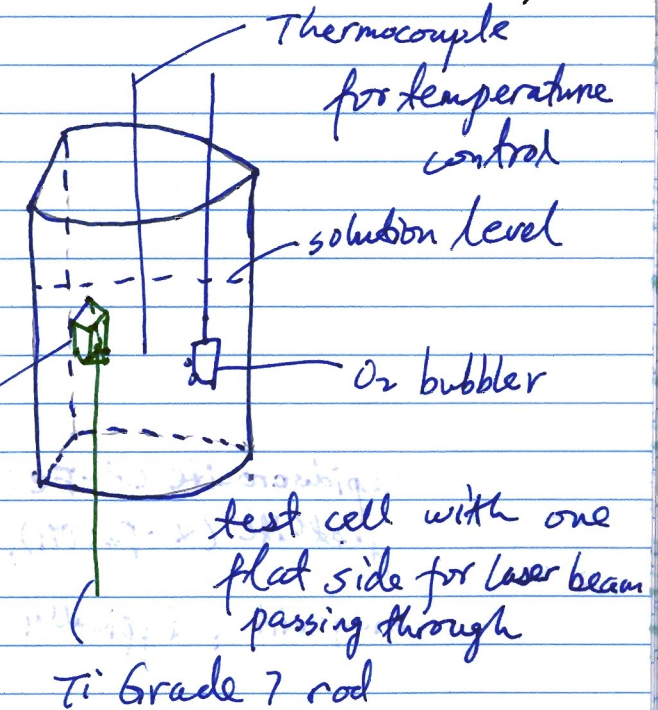 Thermocouple
for temperature
control
solution level
O2 bubbler
test cell with one
flat side for laser beam
passing through
Ti Grade 7 rod